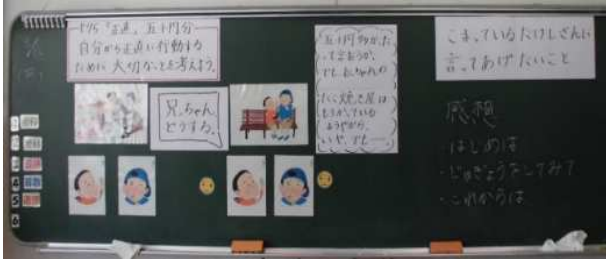 「正直、五十円分
自分から正直に行動する
ために大切なことを考えよう。
兄ちゃん
どうする。
五十円多かった
って言おうか、
でも、おっちゃんの
たこ焼き屋は
もうかっている
ようやから、
いや、でも…
こまっているたけしさんに
言ってあげたいこと
感想
・はじめは
・じゅぎょうをしてみて
・これからは
1
2
3
4
5
6